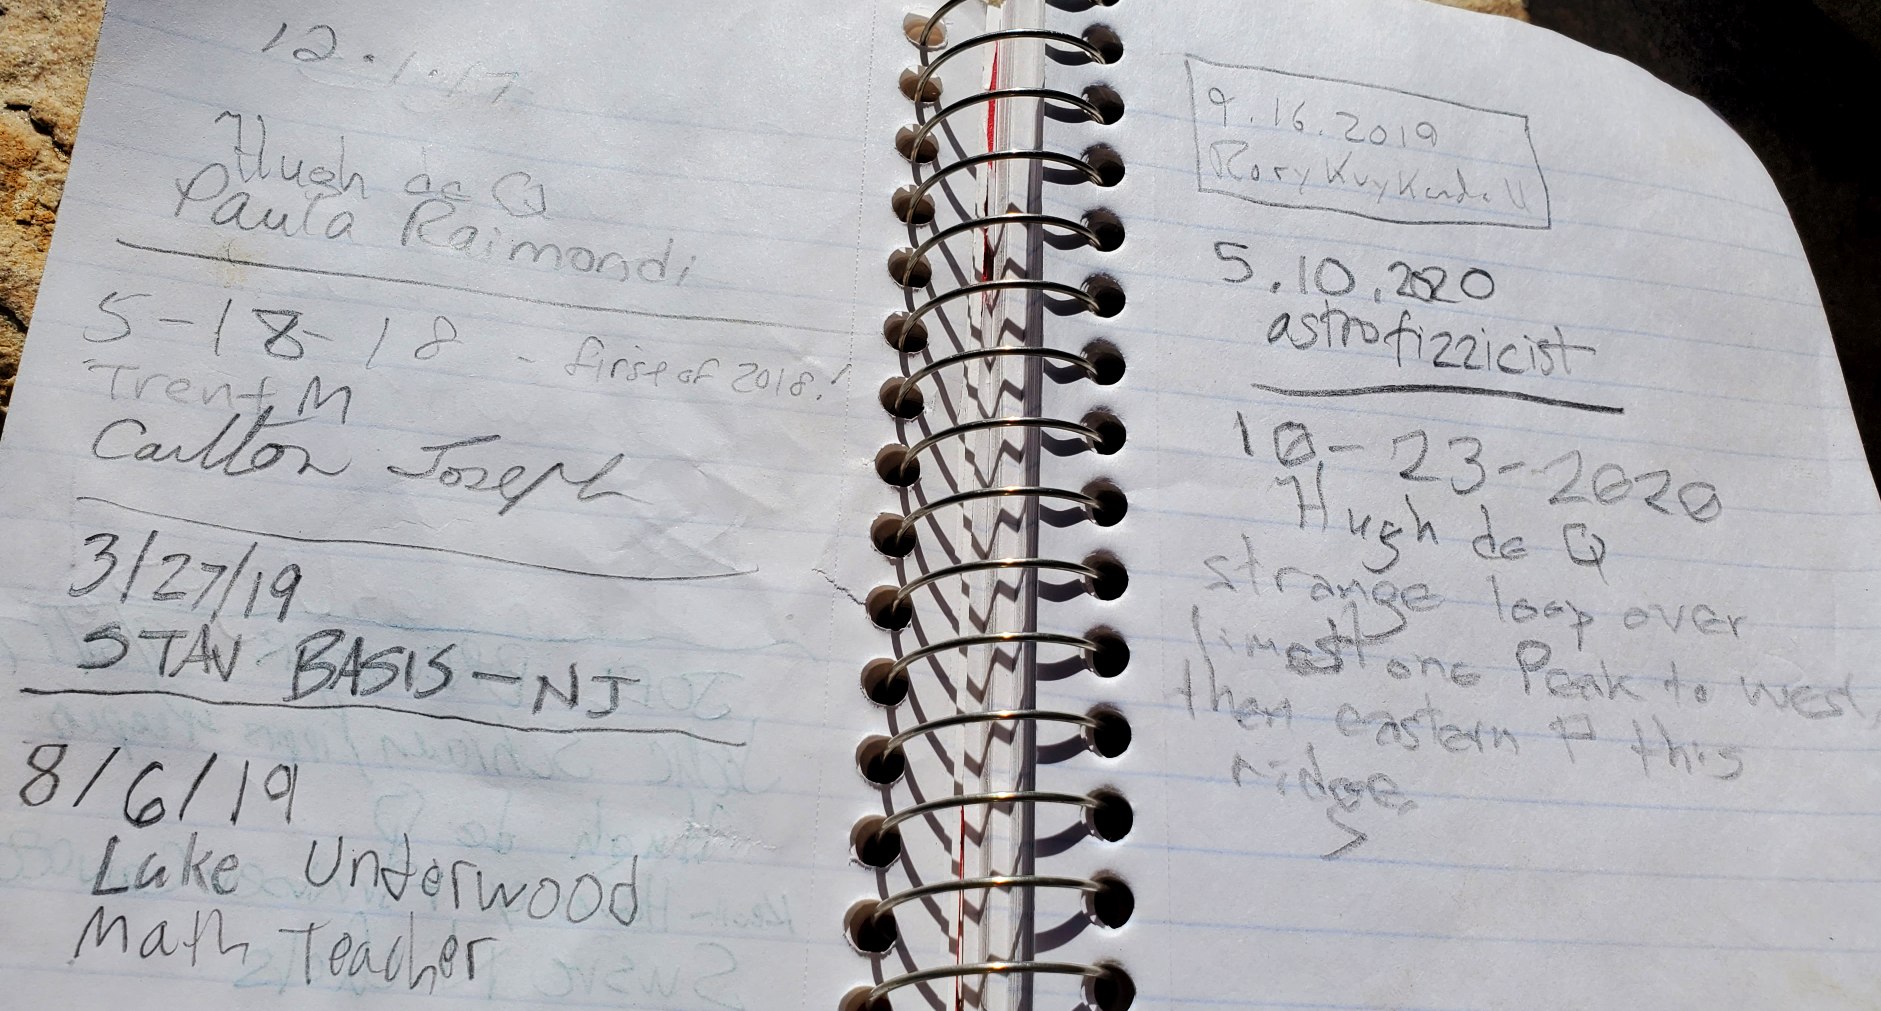 12.1.17
Hugh de Q
Paula Raimondi
5-18-18 - first of 2018!
Trent M
Carlton Joseph
3/27/19
STAV BASIS-NJ
8/6/19
Luke Underwood
Math Teacher
9.16.2019
Rory Kuykendall
5.10.2020
astrofizzicist
10-23-2020
Hugh de Q
strange loop over
limestone Peak to west,
then eastern P this
ridge.
>